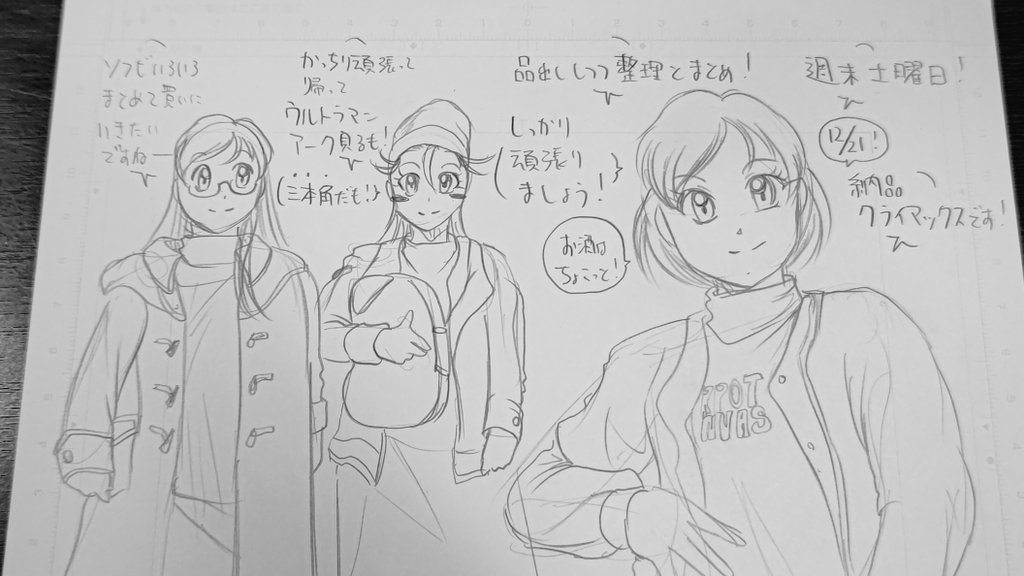 週末土曜日!
12/21!
納品
クライマックスです!
品出ししつつ整理とまとめ!
しっかり
頑張り
ましょう!
お酒は
ちょこっと!
かっちり頑張って
帰って
ウルトラマン
アーク見るも!
(三本角だも!)
ソフビいろいろ
まとめて買いに
いきたい
ですね